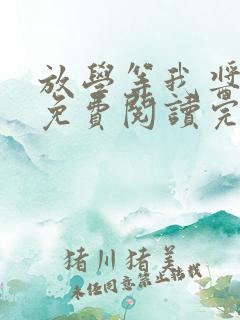 放學等我 將
免費閱讀完
猪川猪美
未经同意禁止转载